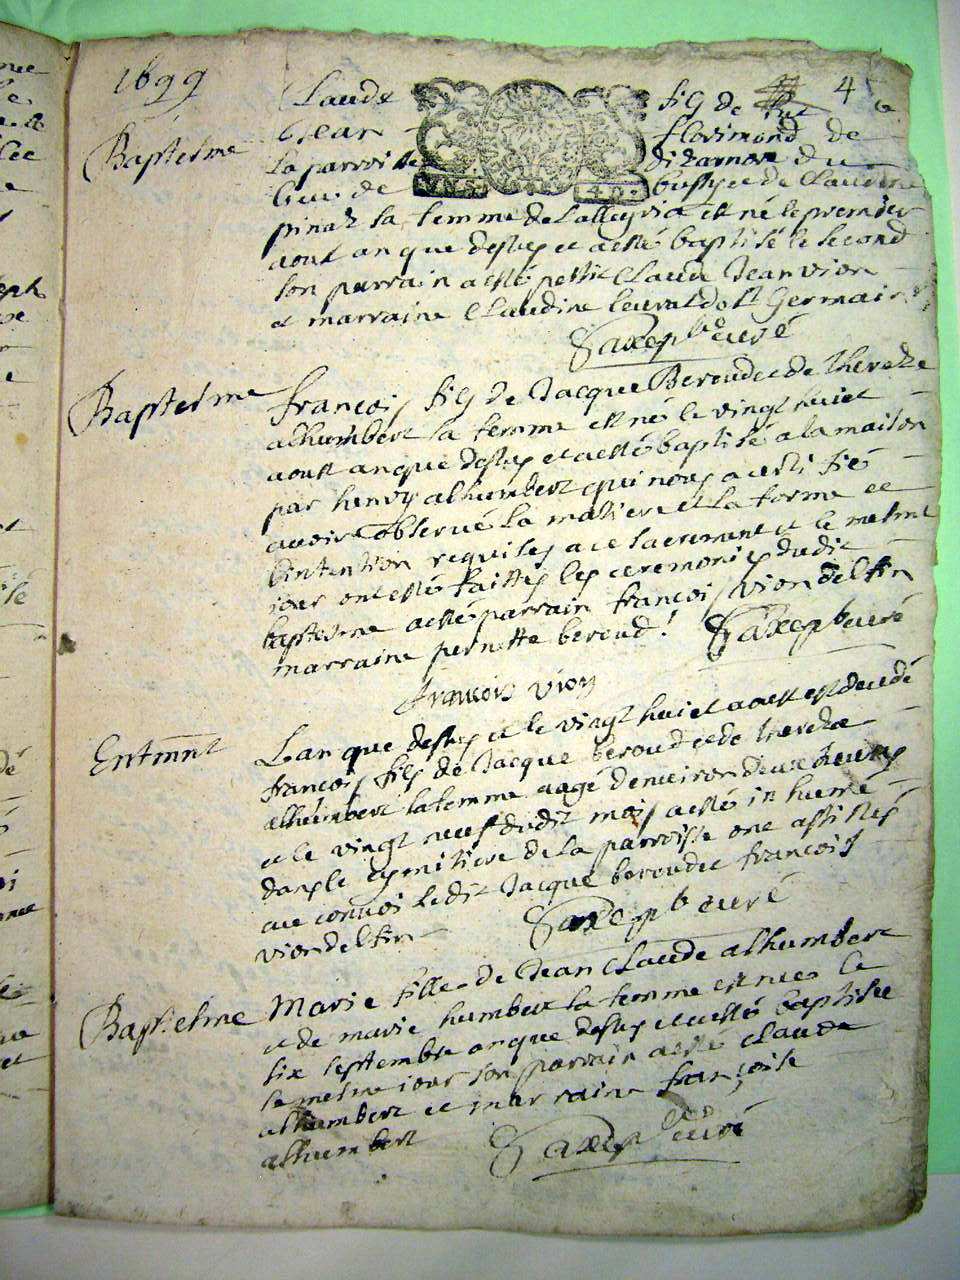 1699
4
Baptesme
Claude fils de
Jean florimond de
la parroisse dizarnore du
lieu de bussy et de Claudine
VN S. 4 D.
pinaz sa femme de est né le premier
aout an que dessus et a esté baptisé le second
son parrain a esté petit Claude Jean vion
et marraine Claudine Germain
Saxep curé
Baptesme
francois fils de Jacque Beroud et de thereze
alhumbert sa femme est né le vingt huict
aoust an que dessus et a esté baptisé a la maison
par henry alhumbert qui nous a certifié
avoir observé la matiere et la forme et
lintention requises a ce sacrement et le mesme
iour ont esté faittes les ceremonies dudit
baptesme a esté parrain francois vion delfin
marraine pernette beroud! Saxep curé
francois vion
Entmnt
Lan que dessus et le vingt huict aoust est decedé
francois fils de Jacque beroud et de thereze
alhumbert sa femme aagé denviron deux heures
et le vingt neuf dudit mois a esté in humé
dans le cymitiere de la parroisse ont assistés
au convois ledit Jacque beroud et francois
vion delfin Saxep curé
Baptesme
Marie fille de Jean Claude alhumbert
et de marie humbert sa femme est nee le
six septembre an que dessus et a esté baptisee
le mesme iour son parrain a esté Claude
alhumbert et marraine françoise
alhumbert Saxep curé